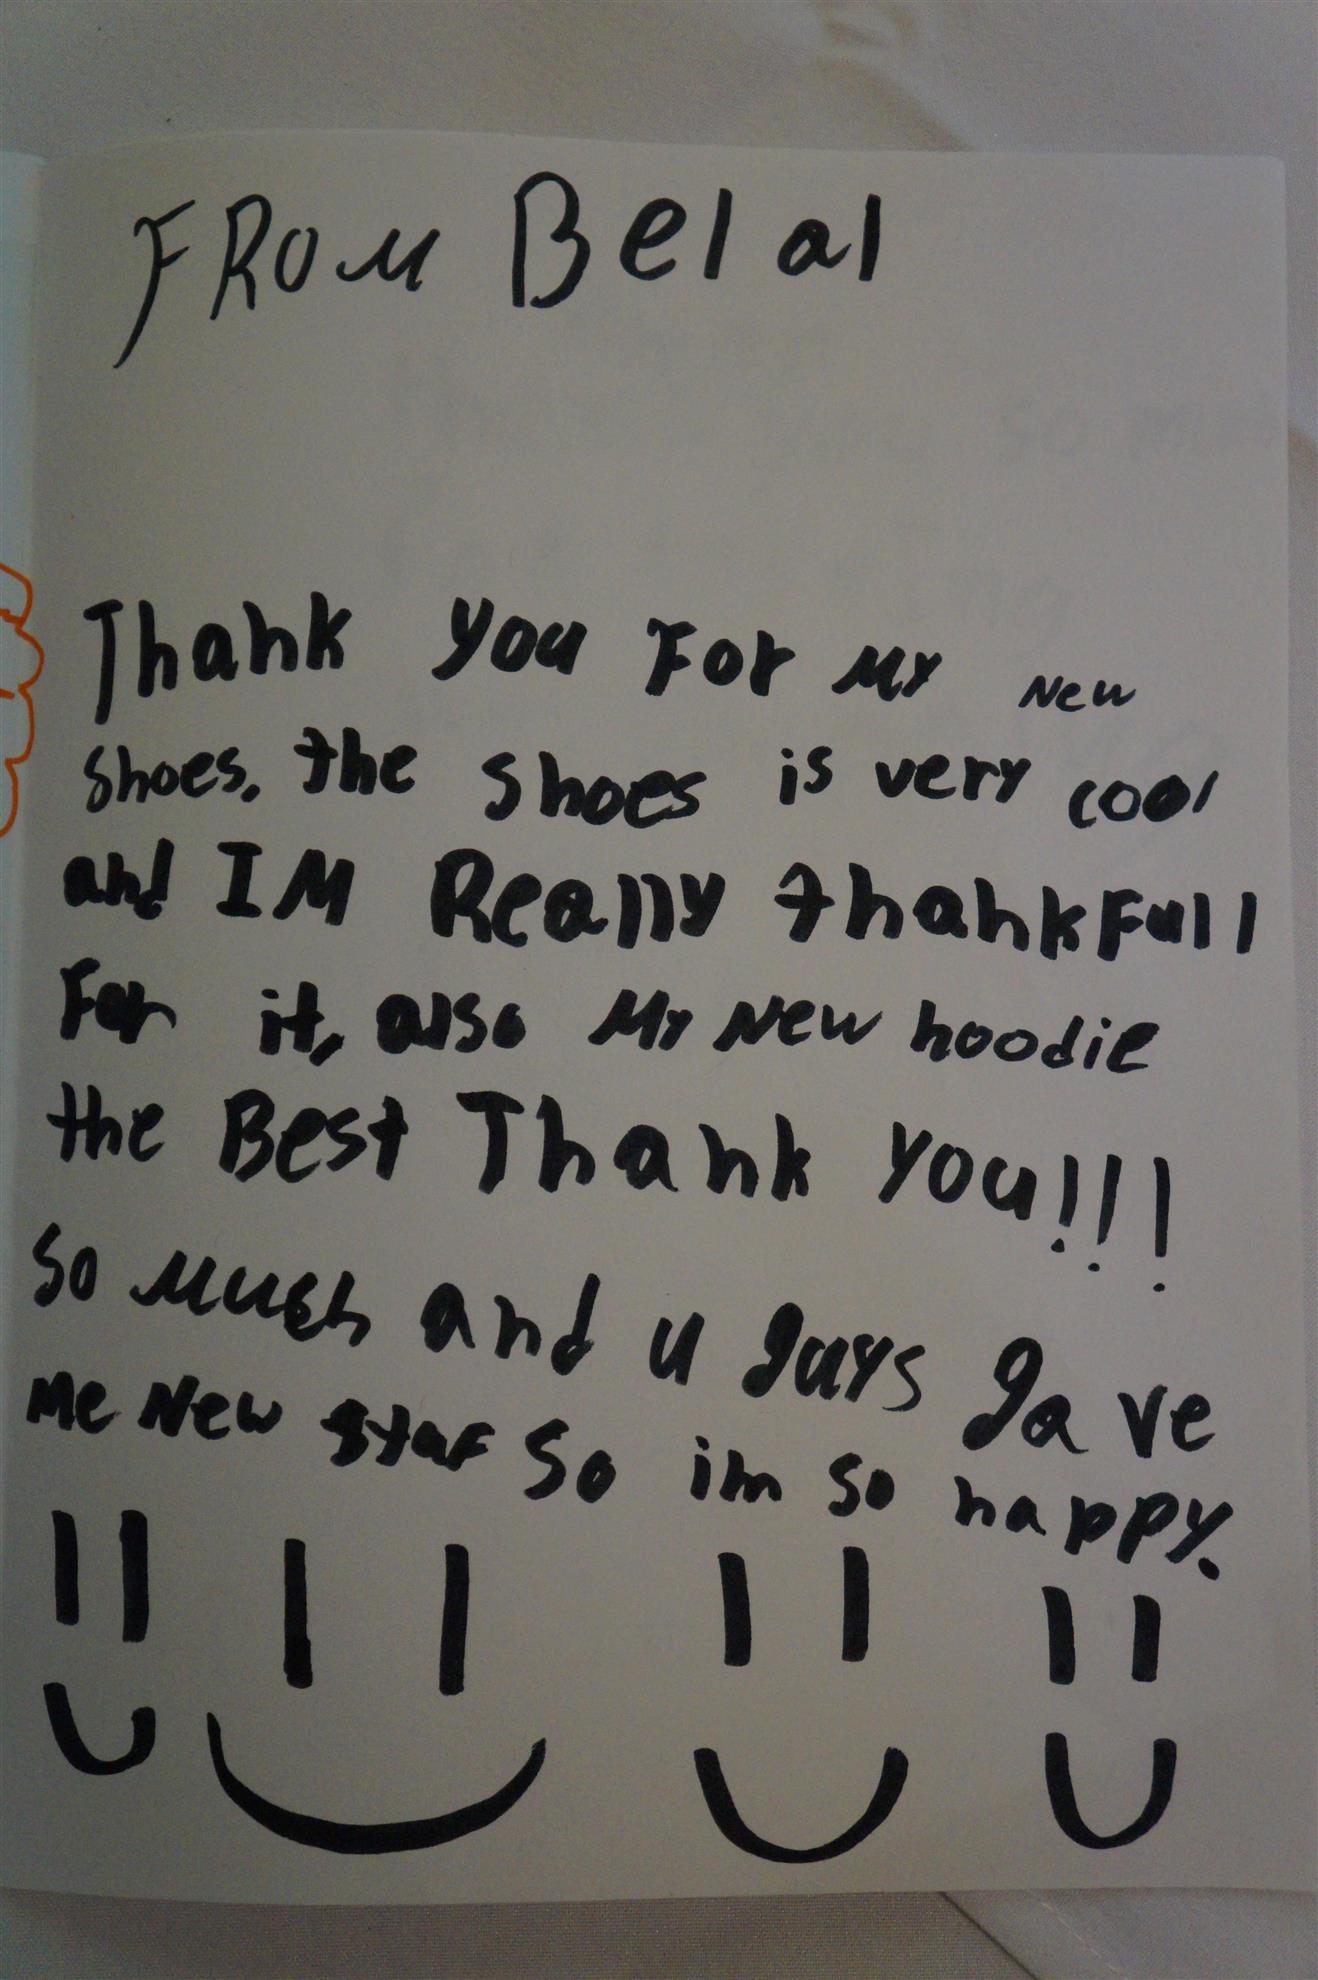 FROM Belal
Thank you For My New
shoes. the shoes is very cool
and IM Really thankFull
For it, also My New hoodie
the Best Thank you!!!
So Much and u guys gave
Me New staf So im so happy.